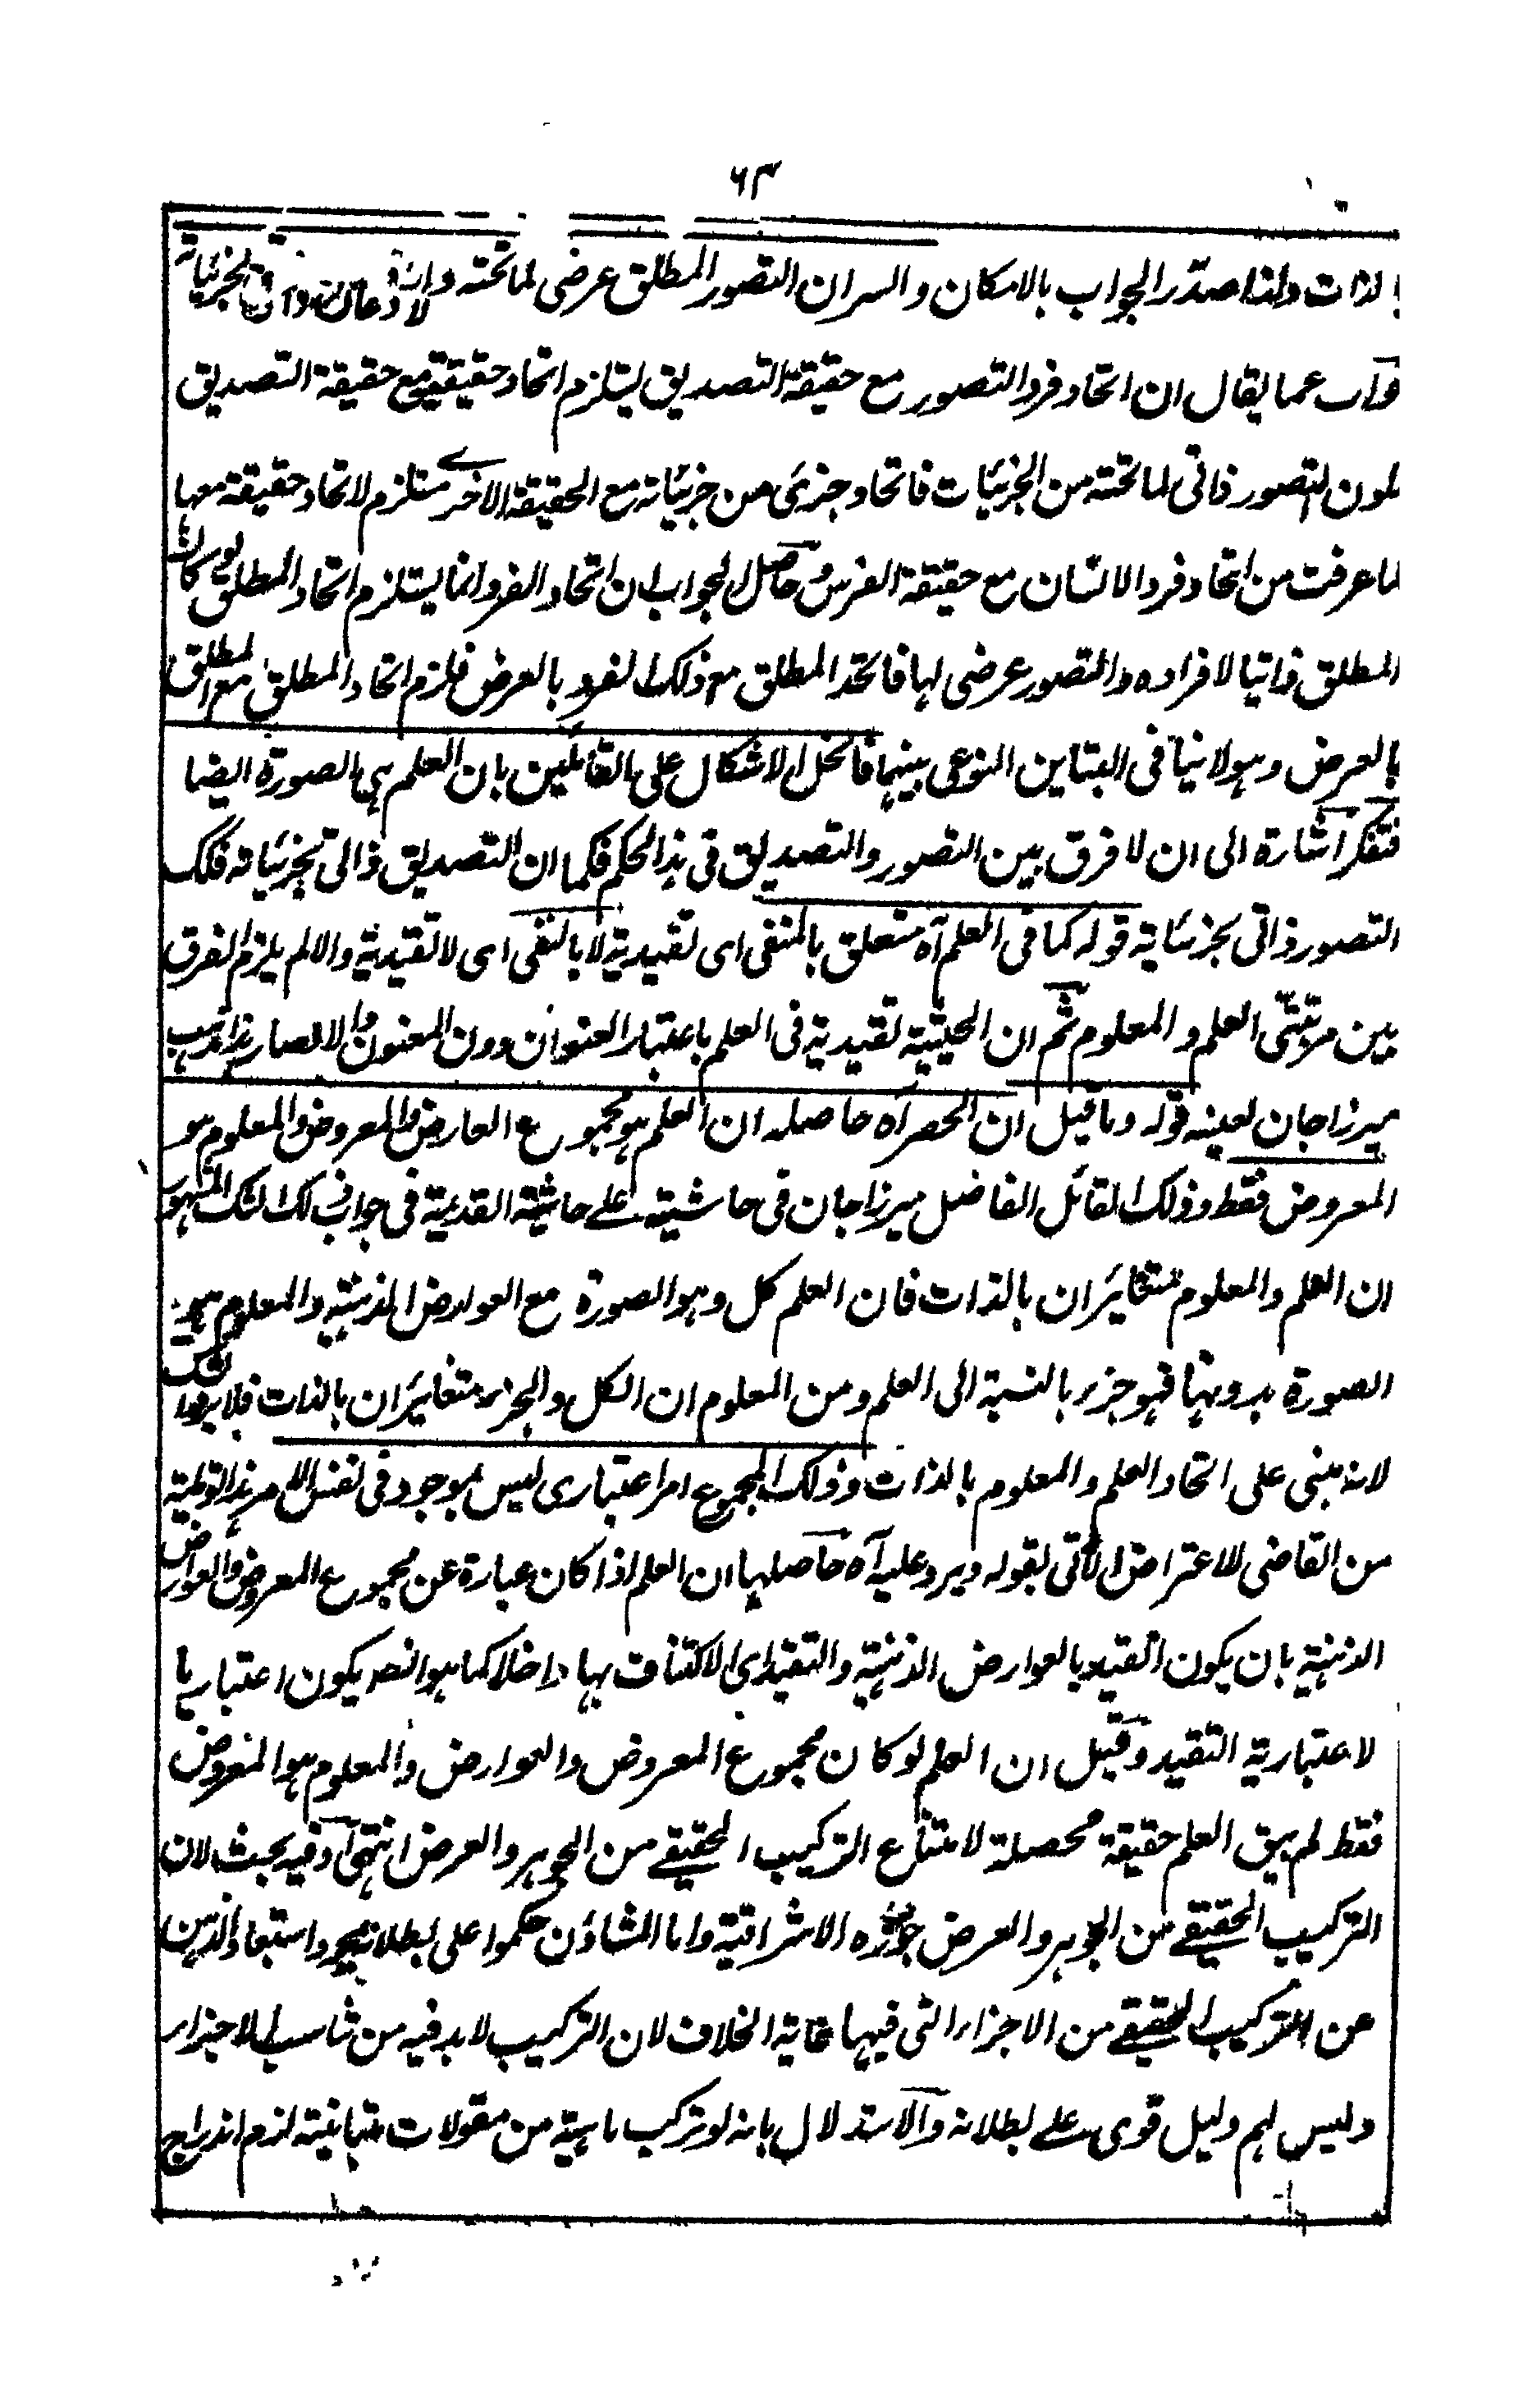 ٦٣
بالذات ولذا صدّر الجواب بالامكان والسر ان التصور المطلق عرضى لما تحته والاذعان ذاتى لجزئياته
جواب عما يقال ان اتحاد فرد التصور مع حقيقة التصديق يستلزم اتحاد حقيقته مع حقيقة التصديق
لكون التصور ذاتى لما تحته من الجزئيات فاتحاد جزئى من جزئياته مع الحقيقة الاخرے مستلزم لاتحاد حقيقة معها
لما عرفت من اتحاد فرد الانسان مع حقيقة الفرس وحاصل الجواب ان اتحاد الفرد انما يستلزم اتحاد المطلق لو كان
المطلق ذاتيا لافراده والتصور عرضى لها فاتحد المطلق مع ذلك الفرد بالعرض فلزم اتحاد المطلق مع المطلق
بالعرض وهو لا ينافى التباين النوعى بينهما فانحل الاشكال على القائلين بان العلم هى الصورة ايضا
فتفكر اشارة الى ان لا فرق بين التصور والتصديق فى هذا الحكم فكما ان التصديق ذاتى لجزئياته فكك
التصور ذاتى لجزئياته قوله كما فى العلم آه متعلق بالمنفى اى تقييدية لا بالنفى اى لا تقييدية والا لم يلزم الفرق
بين مرتبتى العلم والمعلوم ثم ان الحيثية تقييدية فى العلم باعتبار العنوان دون المعنون والا لصار هذا مذهب
ميرزا جان بعينه قوله وما قيل ان الحصر آه حاصله ان العلم هو مجموع العارض والمعروض والمعلوم هو
المعروض فقط وذلك القائل الفاضل ميرزا جان فى حاشيته على حاشية القديمة فى جواب ذلك الشك المشهور
ان العلم والمعلوم متغايران بالذات فان العلم كل وهو الصورة مع العوارض الذهنية والمعلوم هو
الصورة بدونها فهو جزء بالنسبة الى العلم ومن المعلوم ان الكل والجزء متغايران بالذات فلا يرد الشك
لانه مبنى على اتحاد العلم والمعلوم بالذات وذلك المجموع امر اعتبارى ليس بموجود فى نفس الامر هذا توطية
من القاضى للاعتراض الآتى بقوله ويرد عليه آه حاصلها ان العلم اذا كان عبارة عن مجموع المعروض والعوارض
الذهنية بان يكون القيد بالعوارض الذهنية والتقيد اى الاكتناف بها داخلا كما هو النص يكون اعتباريا
لاعتبارية التقيد وقيل ان العلم لو كان مجموع المعروض والعوارض والمعلوم هو المعروض
فقط لم يبق العلم حقيقة محصلة لامتناع التركيب الحقيقے من الجوهر والعرض انتهى وفيه بحث لان
التركيب الحقيقے من الجوهر والعرض جوزه الاشراقية واما المشاؤن حكموا على بطلانه بمجرد استبعاد الذهن
عن التركيب الحقيقے من الاجزاء التى فيها غاية الخلاف لان التركيب لا بد فيه من تناسب الاجزاء
وليس لهم دليل قوى على بطلانه والاستدلال بانه لو تركب ماهية من مقولات متباينة لزم اندراج